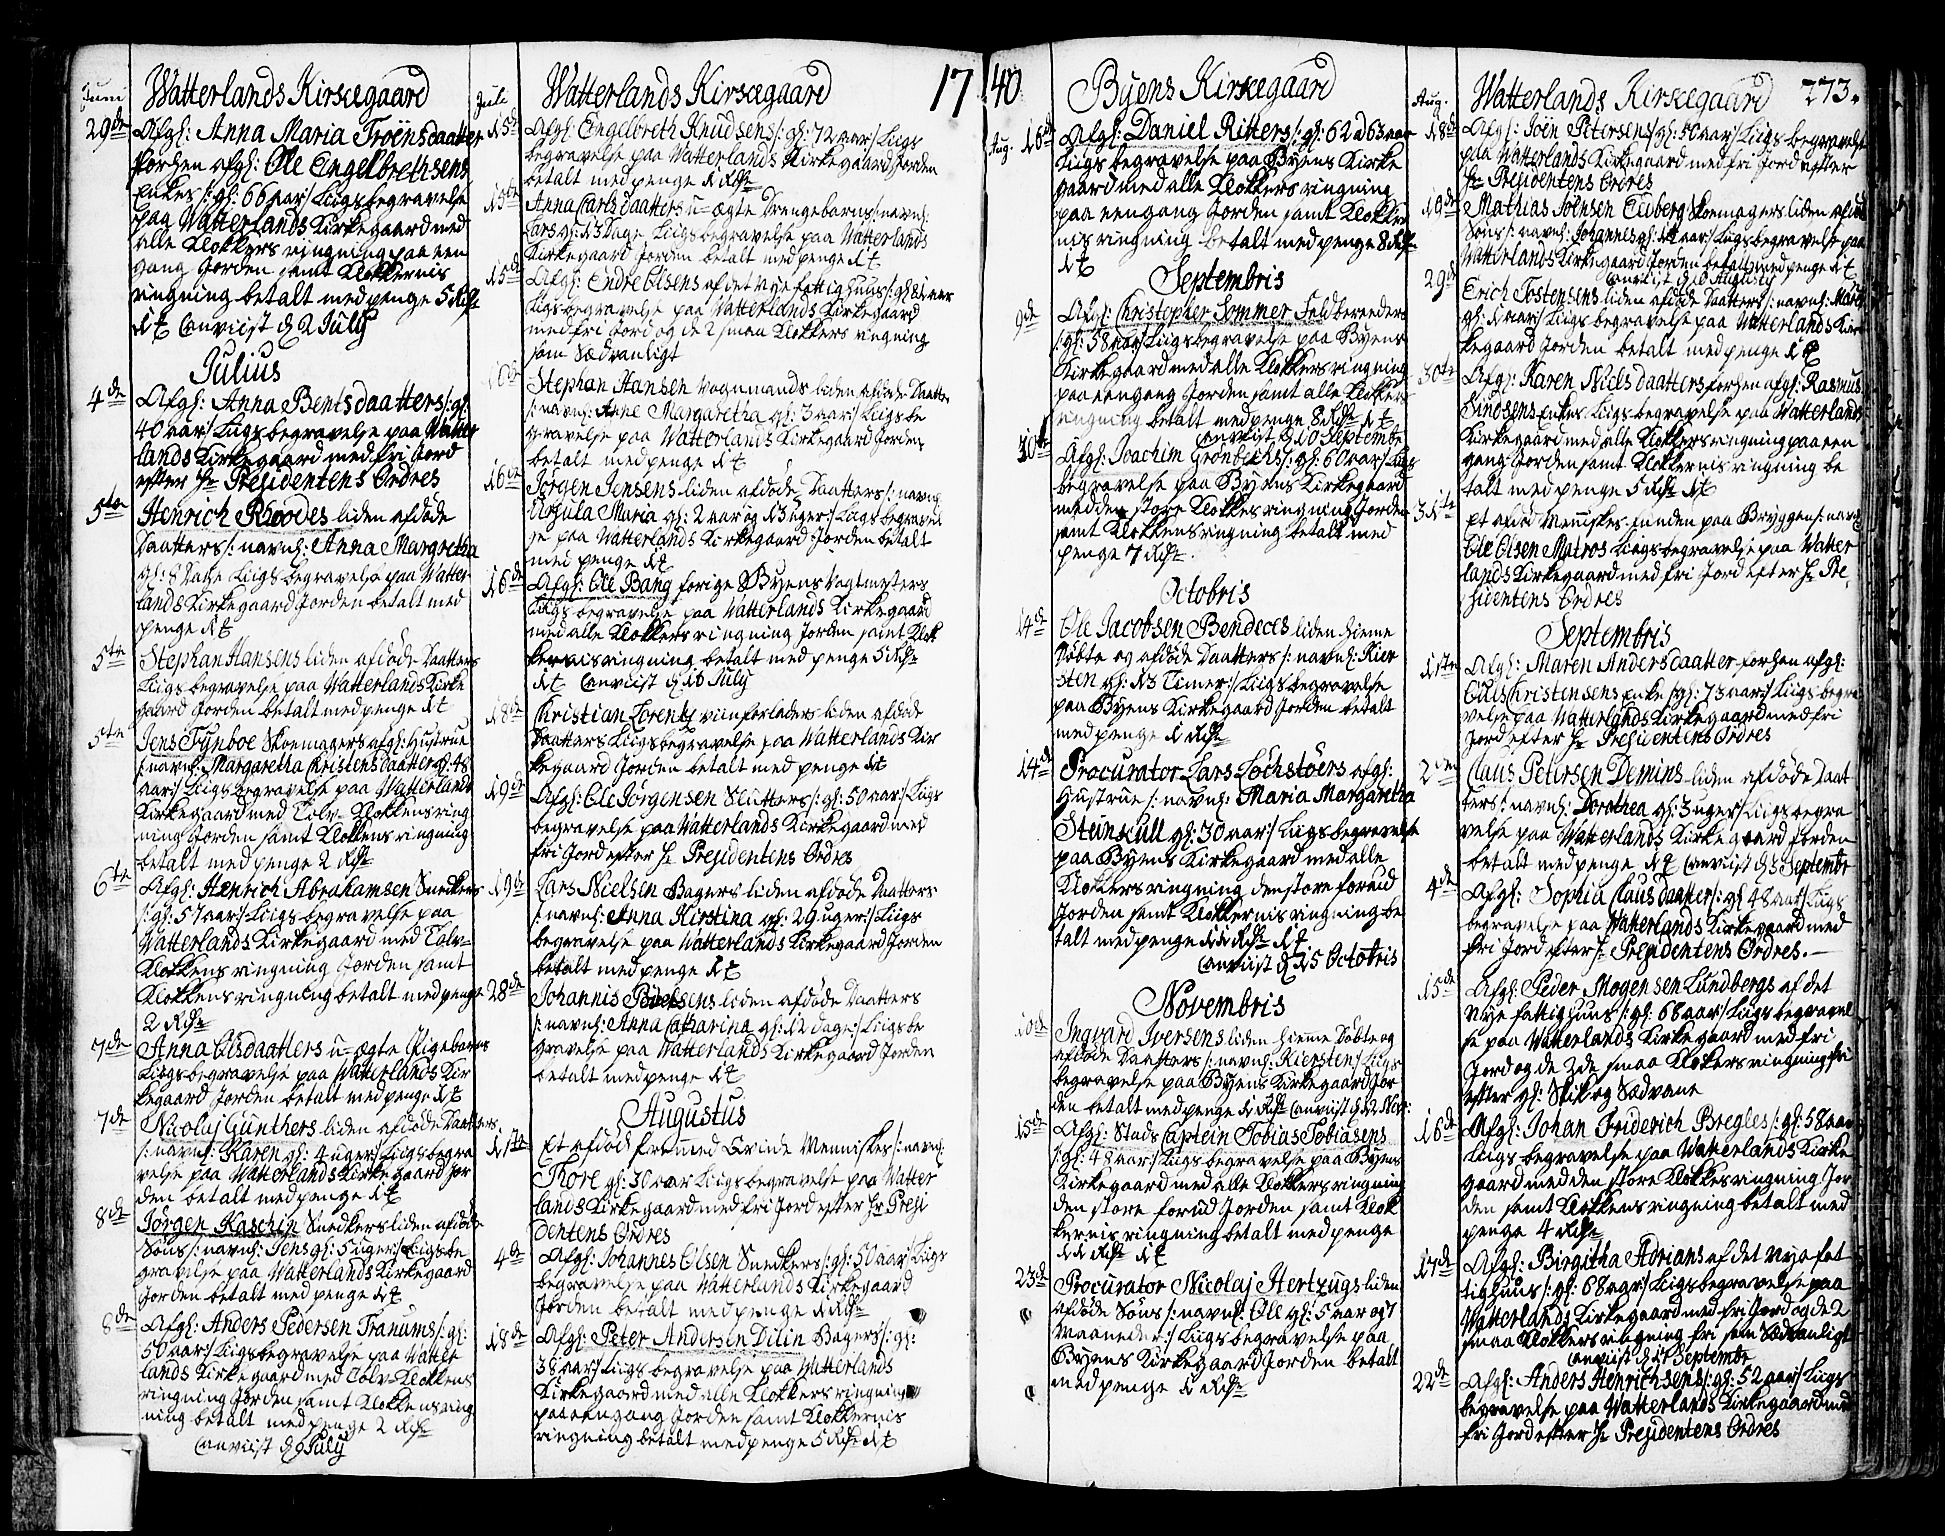 Juni
Watterlands Kirkegaard
29de Afgl: Anna Maria Troënsdaatter
forhen afgl: Ole Engelbrethsens
Enkes /: gl: 66 aar:/ Liigsbegravelse
paa Watterlands Kirkegaard med
alle Klokkers ringning paa een
gang Jorden samt Klokkernis
ringning betalt med penge 5 Rdlr
1 ort anviist d 2 July
Julius
4de Afgl: Anna Bentsdaatters /: gl:
40 aar:/ Liigs begravelse paa Watter
lands Kirkegaard med fri Jord
efter Hr Presidentens Ordres
5te Henrich Rhodes liden afdøde
Daatters /: navnl: Anna Margretha
gl: 8 Dage Liigs begravelse paa Watter
lands Kirkegaard Jorden betalt med
penge 1 ort
5te Stephan Hansens liden afdøde Daatters
Liigs begravelse paa Watterlands Kirke
gaard Jorden betalt med penge 1 ort
5te Jens Fynboe Skoemagers afgl: Hustrue
/: navnl: Margaretha Christensdaatter gl: 48
aar:/ Liigs begravelse paa Watterlands
Kirkegaard med Tolv-Klokkens ring
ning Jorden samt Klokkens ringning
betalt med penge 2 Rdlr
6te Afgl: Henrich Abrahamsen Snedkers
/: gl: 57 aar:/ Liigs begravelse paa
Watterlands Kirkegaard med Tolv-
Klokkens ringning Jorden samt
Klokkens ringning betalt med penge
2 Rdlr
7de Anna Olsdaatters u-ægte Pigebarns
Liigs begravelse paa Watterlands Kir
kegaard Jorden betalt med penge 1 ort
7de Nicolaj Gunthers liden afdøde Daatters
/: navnl: Karen gl: 4 uger:/ Liigs begra
velse paa Watterlands Kirkegaard Jor
den betalt med penge 1 ort
8de Jørgen Kaschin Snedkers liden afdøde
Søns /: navnl: Jens gl: 5 uger:/ Liigs be
gravelse paa Watterlands Kirkegaard
Jorden betalt med penge 1 ort
8de Afgl: Anders Pedersen Tranums /: gl:
50 aar:/ Liigs begravelse paa Watter
lands Kirkegaard med Tolv-Klokkens
ringning Jorden samt Klokkens ring
ning betalt med penge 2 Rdlr
anviist d 9 July
Juli
Watterlands Kirkegaard 17
15de Afgl: Engelbreth Knudsens /: gl: 72 aar:/ Liigs
begravelse paa Watterlands Kirkegaard Jorden
betalt med penge 1 Rdlr
15de Anna Carlsdaatters u-ægte Drengebarns /: navnl:
Lars gl: 13 Dage Liigs begravelse paa Watterlands
Kirkegaard Jorden betalt med penge 1 ort
15de Afgl: Endre Olsens af det Nye fattighuus /: gl: 81 aar
Liigs begravelse paa Watterlands Kirkegaard
med fri Jord og de 2 smaa Klokkers ringning
som Sædvanligt
16de Stephan Hansen Vognmands liden afdøde Daatters
/: navnl: Anne Margaretha gl: 3 aar:/ Liigs be
gravelse paa Watterlands Kirkegaard Jorden
betalt med penge 1 ort
16de Jørgen Jensens liden afdøde Daatters /: navnl:
Ursula Maria gl: 2 aar og 13 uger:/ Liigs begravel
se paa Watterlands Kirkegaard Jorden betalt
med penge 1 ort
16de Afgl: Ole Bang forige Byens Vagtmesters
Liigs begravelse paa Watterlands Kirkegaard
med alle Klokkers ringning Jorden samt Klok
kernis ringning betalt med penge 5 Rdlr
1 ort anviist d 16 July
18de Christian Lorentz Viinforladers liden afdøde
Daatters Liigs begravelse paa Watterlands Kir
kegaard Jorden betalt med penge 1 ort
19de Afgl: Ole Jørgensen Slutters /: gl: 50 aar:/ Liigs
begravelse paa Watterlands Kirkegaard med
fri Jord efter Hr Presidentens Ordres
19de Lars Nielsen Bagers liden afdøde Daatters
/: navnl: Anna Kirstina gl: 29 uger:/ Liigs
begravelse paa Watterlands Kirkegaard Jorden
betalt med penge 1 ort
28de Johannis Poelsens liden afdøde Daatters
/: navnl: Anna Catharina gl: 12 dage:/ Liigs be
gravelse paa Watterlands Kirkegaard Jorden
betalt med penge 1 ort
Augustus
1ste Et afdød fremmed Qvinde Menniskes /: navnl:
Thore gl: 30 aar Liigs begravelse paa Watter
lands Kirkegaard med fri Jord efter Hr Presi
dentens Ordres
4de Afgl: Johannes Olsen Snedkers /: gl: 50 aar:/ Liigs
begravelse paa Watterlands Kirkegaard
Jorden betalt med penge 1 Rdlr
18de Afgl: Peter Andersen Dilin Bagers /: gl:
38 aar:/ Liigs begravelse paa Watterlands
Kirkegaard med alle Klokkers ringning
paa een gang Jorden samt Klokkernis
ringning betalt med penge 5 Rdlr 1 ort
40 Byens Kirkegaard
Aug. 16de Afgl: Daniel Ritters /: gl: 62 a 63 aar
Liigs begravelse paa Byens Kirke
gaard med alle Klokkers ringning
paa een gang Jorden samt Klokker
nis ringning betalt med penge 8 Rdlr
1 ort
Septembris
9de Afgl: Christopher Sommer Feldbereeders
/: gl: 58 aar:/ Liigs begravelse paa Byens
Kirkegaard med alle Klokkers ringning
paa een gang Jorden samt alle Klokkers
ringning betalt med penge 8 Rdlr 1 ort
anviist d 10 Septembr
30te Afgl: Joachim Grønbechs /: gl: 60 aar:/ Liigs
begravelse paa Byens Kirkegaard
med den store Klokkes ringning Jorden
samt Klokkens ringning betalt med
penge 7 Rdlr.
Octobris
14de Ole Jacobsen Bendeces liden hieme
Døbte og afdøde Daatters /: navnl: Kier
sten gl: 13 Timer:/ Liigs begravelse
paa Byens Kirkegaard Jorden betalt
med penge 1 Rdlr
14de Procurator Lars Løchstøers afgl:
Hustrue /: navnl: Maria Margaretha
Steinkull gl: 30 aar:/ Liigs begravelse
paa Byens Kirkegaard med alle
Klokkers ringning den store forud
Jorden samt Klokkernis ringning be
talt med penge 11 Rdlr 1 ort
anviist d 15 Octobris
Novembris
10de Ingvard Iversens liden hieme Døbte og
afdøde Daatters /: navnl: Kiersten:/ Liigs
begravelse paa Byens Kirkegaard Jor
den betalt med penge 1 Rdlr anviist d 12 Nov:
15de Afgl: Stads Captein Tobias Tobiasens
/: gl: 48 aar:/ Liigs begravelse paa Byens
Kirkegaard med alle Klokkers ringning
den store forud Jorden samt Klok
kernis ringning betalt med penge
11 Rdlr 1 ort
23de Procurator Nicolaj Hertzugs liden
afdøde Søns /: navnl: Ole gl: 5 aar og 7
Maaneder:/ Liigs begravelse paa
Byens Kirkegaard Jorden betalt
med penge 1 Rdlr
Aug.
Watterlands Kirkegaard 273.
18de Afgl: Joën Pettersens /: gl: 50 aar:/ Liigs begravelse
paa Watterlands Kirkegaard med fri Jord efter
Hr Presidentens Ordres
19de Mathias Joënsen Tuberg Skoemagers liden afdøde
Søns /: navnl: Johannes gl: 1 aar:/ Liigs begravelse paa
Watterlands Kirkegaard Jorden betalt med penge 1 ort
anviist d 20 Augusty
29de Erich Tostensens liden afdøde Daatters /: navnl: Maren
gl: 1 aar:/ Liigs begravelse paa Watterlands Kir
kegaard Jorden betalt med penge 1 ort
30te Afgl: Karen Nielsdaatters forhen afgl: Rasmus
Enkes Liigs begravelse paa Watterlands
Kirkegaard med alle Klokkers ringning paa een
gang Jorden samt Klokkernis ringning be
talt med penge 5 Rdlr 1 ort
31te Et afdød Menniskes funden paa Bryggen /: navnl:
Ole Olsen Matros Liigs begravelse paa Watter
lands Kirkegaard med fri Jord efter Hr Pre-
sidentens Ordres
Septembris
1ste Afgl: Maren Andersdaatter forhen afgl:
Oule Christensens Enke /: gl: 73 aar:/ Liigs begra
velse paa Watterlands Kirkegaard med fri
Jord efter Hr Presidentens Ordres
2den Claus Petersen Demins liden afdøde Daat
ters /: navnl: Dorothea gl: 3 uger:/ Liigs begra
velse paa Watterlands Kirkegaard Jorden
betalt med penge 1 ort anviist d 3 Septembr
4de Afgl: Sophia Clausdaatter /: gl: 48 aar:/ Liigs
begravelse paa Watterlands Kirkegaard med
fri Jord efter Hr Presidentens Ordres.—
15de Afgl: Peder Mogensen Lundbergs af det
Nye fattighuus /: gl: 66 aar:/ Liigs begravel
se paa Watterlands Kirkegaard med fri
Jord og de 2de smaa Klokkers ringning fri
efter gl: Skik og Sædvane
16de Afgl: Johan Friderich Bregles /: gl: 58 aar
Liigs begravelse paa Watterlands Kirke
gaard med den store Klokkes ringning Jor
den samt Klokkens ringning betalt med
penge 4 Rdlr
17de Afgl: Birgitha Adrians af det Nye fat
tighuus /: gl: 68 aar:/ Liigs begravelse paa
Watterlands Kirkegaard med fri Jord og de 2
smaa Klokkers ringning fri som Sædvanligt
anviist d 17 Septembr
22de Afgl: Anders Henrichsens /: gl: 52 aar:/ Liigs
begravelse paa Watterlands Kirkegaard med
fri Jord efter Hr Presidentens Ordres